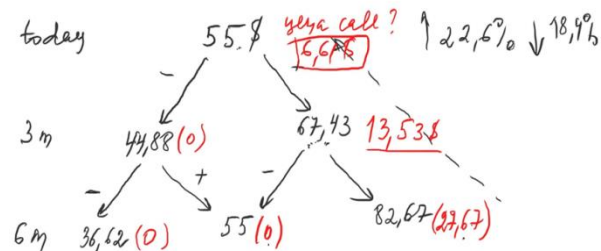 today 55 $ цена call? ↑ 22,6% ↓ 18,4%
6,6
3m 44,88 (0) 67,43 13,53$
6m 36,62 (0) 55 (0) 82,67 (27,67)